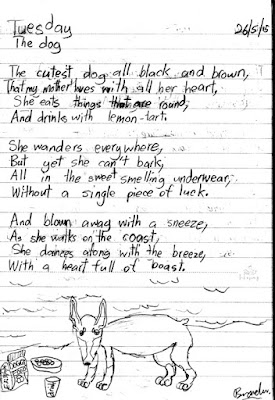 Tuesday
26/5/15
The dog
The cutest dog all black and brown,
That my mother loves with all her heart,
She eats things that are round,
And drinks with lemon-tart.
She wanders everywhere,
But yet she can't bark,
All in the sweet smelling underwear,
Without a single piece of luck.
And blown away with a sneeze,
As she walks on the coast,
She dances along with the breeze,
With a heart full of boast.